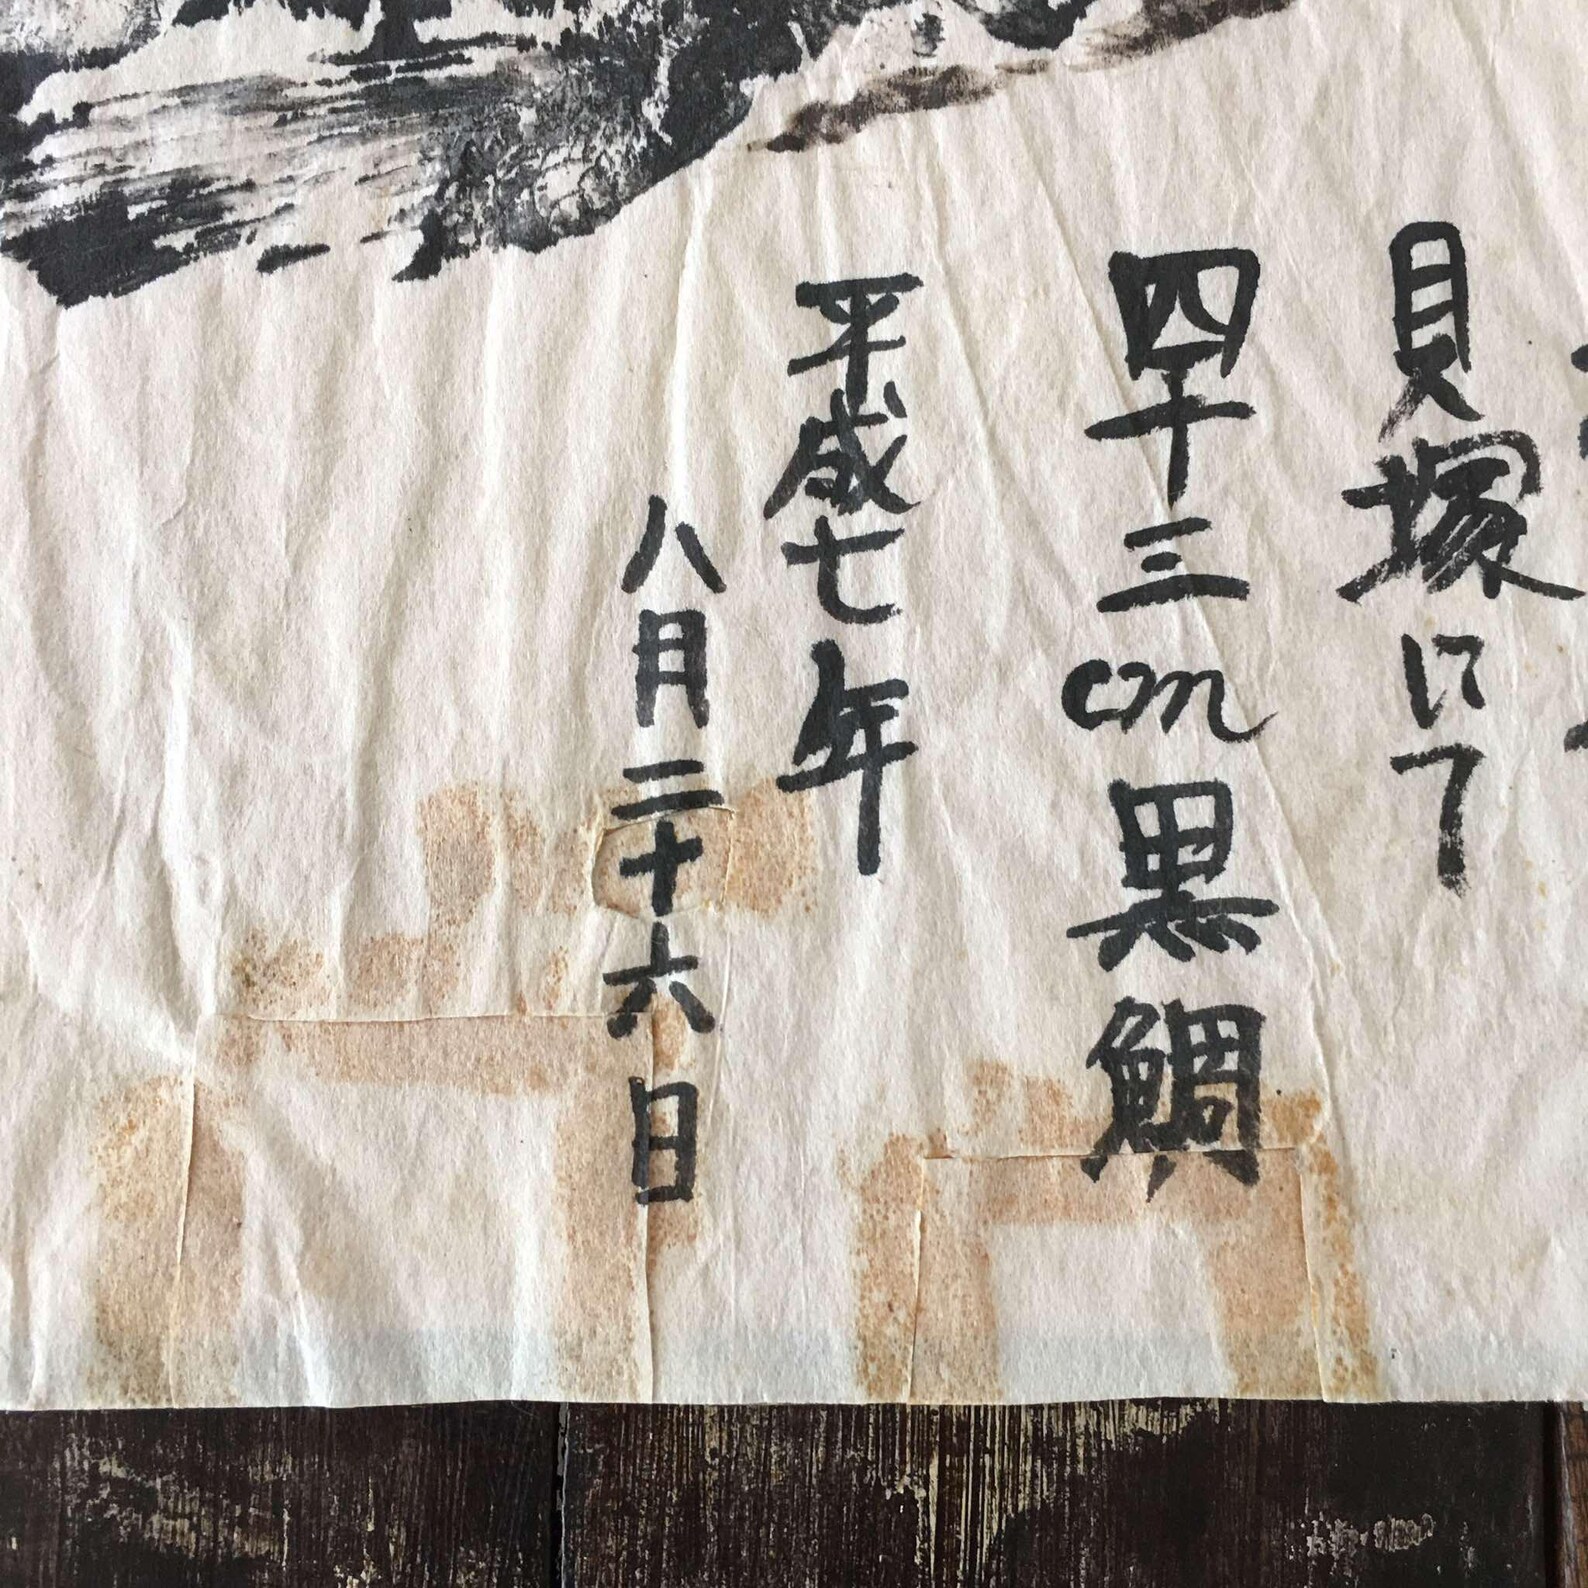 貝塚にて
四十三cm黒鯛
平成七年
八月二十六日